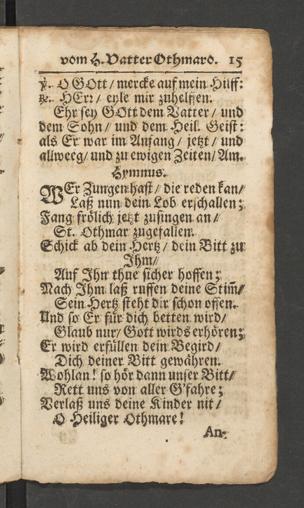 vom H. Vatter Othmaro. 15
℣. O GOtt / mercke auf mein Hülff:
℟. HErr / eyle mir zuhelffen.
Ehr sey GOtt dem Vatter / und
dem Sohn / und dem Heil. Geist:
als Er war im Anfang / jetzt / und
allweeg / und zu ewigen Zeiten / Am.
Hymnus.
WEr Zungen hast / die reden kan /
Laß nun dein Lob erschallen;
Fang frölich jetzt zusingen an /
St. Othmar zugefallen.
Schick ab dein Hertz / dein Bitt zu
Ihm /
Auf Ihn thue sicher hoffen;
Nach Ihm laß ruffen deine Stim̃ /
Sein Hertz steht dir schon offen.
Und so Er für dich betten wird /
Glaub nur / Gott wirds erhören;
Er wird erfüllen dein Begird /
Dich deiner Bitt gewähren.
Wohlan! so hör dann unser Bitt /
Rett uns von aller G'fahre;
Verlaß uns deine Kinder nit /
O Heiliger Othmare!
An-